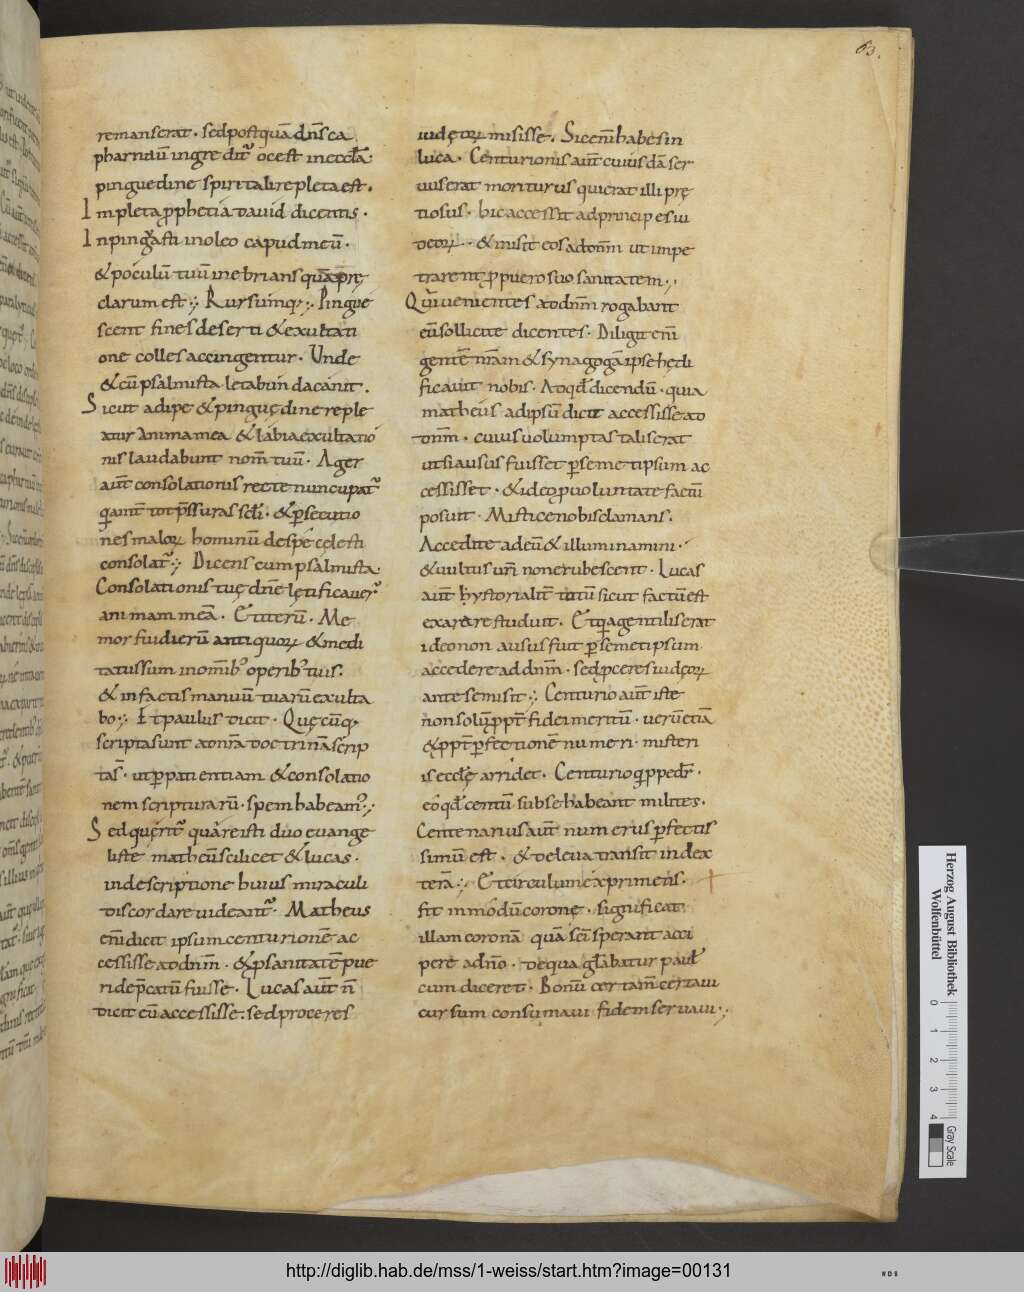 63.
remanserat. sed postquā dn̄s ca
pharnāū ingredit̄ oc est in eccl̄a
pinguedine spiritali repleta est.
Impleta p̄phetia dauid dicentis.
Inpinguasti in oleo capud meū.
& poculū tuū inebrians quā p̄rę
clarum est; Rursumq; Pingue
scent fines deserti & exultati
one colles accingentur. Unde
& cū psalmista letabunda canit.
Sicut adipe & pinguędine reple
atur anima mea & labia exultatio
nis laudabunt nom̄ tuū. Ager
aūt consolationis recte nuncupat̄
tot p̄ssuras sc̄li. & p̄secutio
nes maloꝝ hominū despe cęlesti
consolat̄; Dicens cum psalmista
Consolationis tuę dn̄e lętificauer̄
animam meā. Et iterū. Me
mor fui dierū antiquoꝝ & medi
tatus sum in omib; operib; tuis.
& in factis manuū tuarū exulta
bo; Et paulus dicit. Quęcūq;
scripta sunt ad nr̄a doctrinā scrip
ta s̄. ut p patientiam & consolatio
nem scripturarū. spem habeam;
Sed querit̄ quare isti duo euange
listę matheus scilicet & lucas.
in descriptione huius miraculi
discordare uideant̄. Matheus
eni dicit ipsum centurionē ac
cessisse ad dnm̄. & p sanitatē pue
ri dep̄catū fuisse. Lucas aūt n̄
dicit eū accessisse. sed proceres
iudęoꝝ misisse. Sic eni habes in
luca. Centurionis aūt cuiusdā ser
uus erat moriturus qui erat illi prę
tiosus. hic accessit ad principes iu
deoꝝ. & misit eos ad dnm̄ ut impe
trarent p puero suo sanitatem.
Qui uenientes ad dnm̄ rogabant
eū sollicite dicentes. Diligit eni
gentē nr̄am & synagogā ipse hędi
ficauit nobis. Ad qd̄ dicendū. quia
matheus ad ipsū dicit accessisse ad
dnm̄. cuius uolumptas talis erat
ut si ausus fuisset p semetipsum ac
cessisset. & ideo p uoluntate factū
posuit. Mistice nobis clamans.
Accedite ad eū & illuminamini.
& uultus ur̄i non erubescent. Lucas
aūt hystorialit̄ totū sicut factū est
exarare studuit. Et quia gentilis erat
ideo non ausus fuit p semetipsum
accedere ad dnm̄. sed proceres iudęoꝝ
ante se misit; Centurio aūt iste
non solū ppt̄ fidei meritū. uerū etiā
& ppt̄ p̄fectionē numeri. misteri
is ecclę arridet. Centurio
eo qd̄ centū sub se habeant milites.
Centenarius aūt numerus p̄fectis
simus est. & de leua transit in dex
terā; Et circulum exprimens.
fit in modū coronę. significat
illam coronā quā sc̄i sperant acci
pere a dn̄o. de qua gl̄abatur paul̄
cum diceret. Bonū certam̄ certaui
cursum consumaui fidem seruaui;
Herzog August Bibliothek
Wolfenbüttel
0 1 2 3 4
Gray Scale
http://diglib.hab.de/mss/1-weiss/start.htm?image=00131